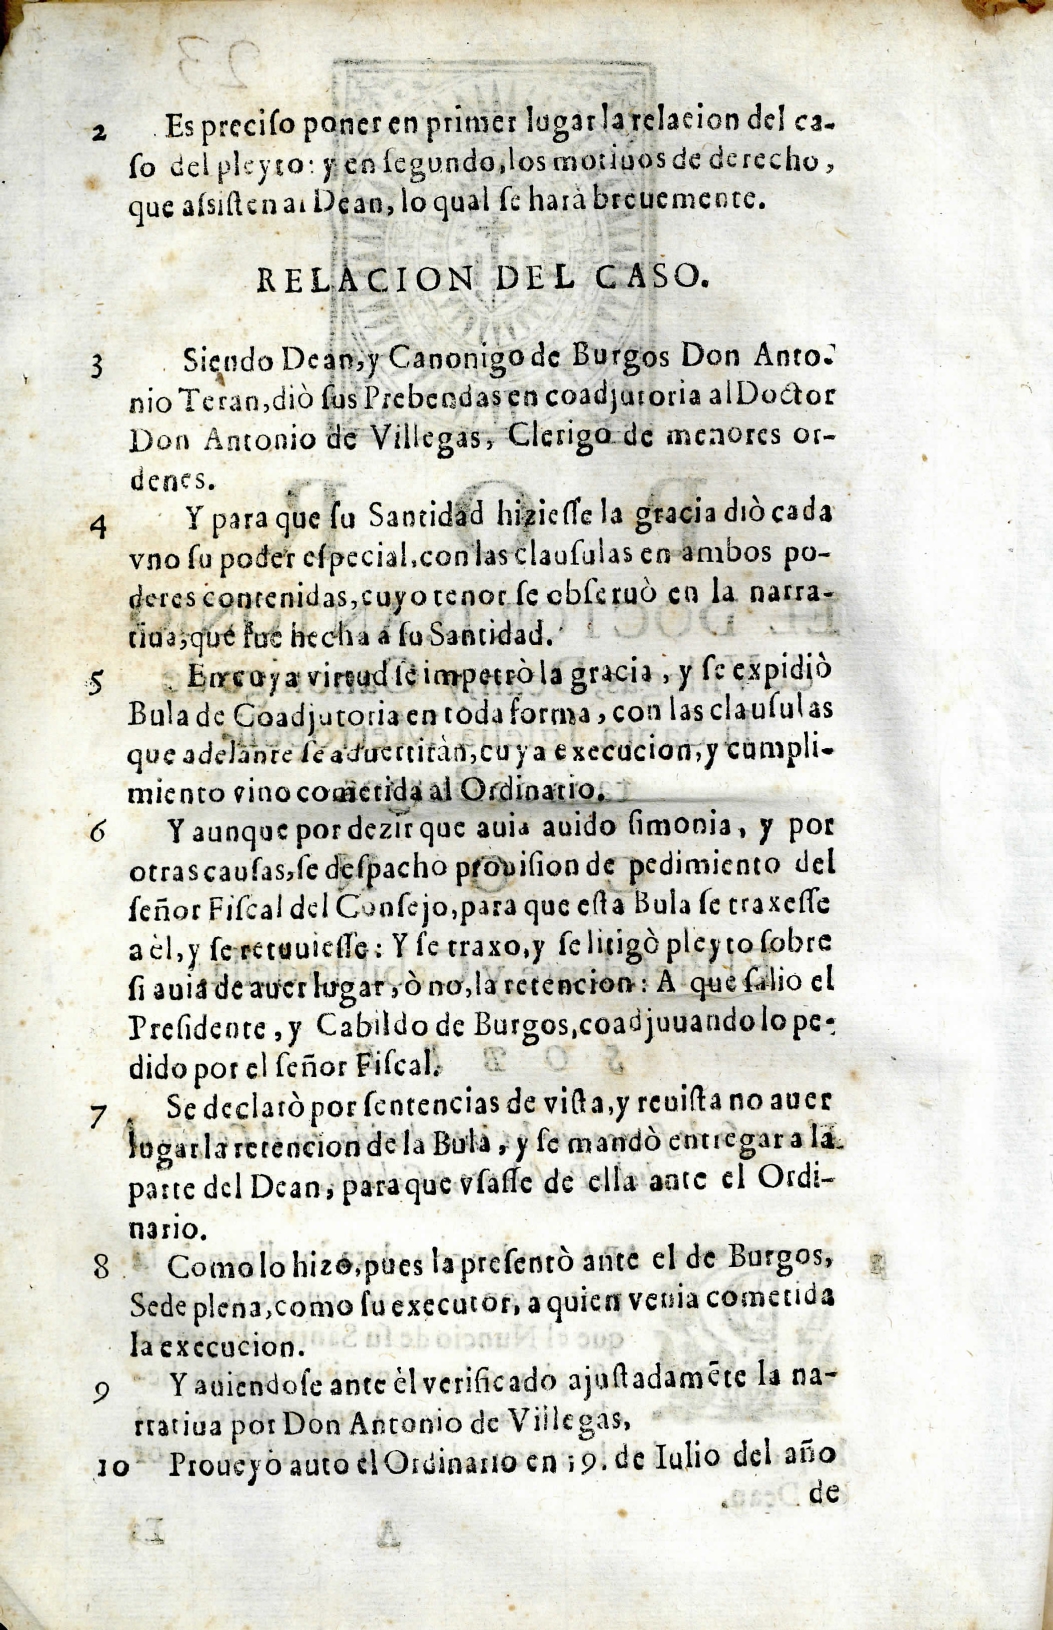 2 Es preciſo poner en primer lugar la relacion del ca-
ſo del pleyto: y en ſegundo, los motiuos de derecho,
que aſsiſten al Dean, lo qual ſe harà breuemente.
RELACION DEL CASO.
3 Siendo Dean, y Canonigo de Burgos Don Anto-
nio Teran, diò ſus Prebendas en coadjutoria al Doctor
Don Antonio de Villegas, Clerigo de menores or-
denes.
4 Y para que ſu Santidad hizieſſe la gracia diò cada
vno ſu poder eſpecial, con las clauſulas en ambos po-
deres contenidas, cuyo tenor ſe obſeruò en la narra-
tiua, que fue hecha a ſu Santidad.
5 En cuya virtud ſe impetrò la gracia, y ſe expidiò
Bula de Coadjutoria en toda forma, con las clauſulas
que adelante ſe aduertiràn, cuya execucion, y cumpli-
miento vino cometida al Ordinario.
6 Y aunque por dezir que auia auido ſimonia, y por
otras cauſas, ſe deſpacho prouiſion de pedimiento del
ſeñor Fiſcal del Conſejo, para que eſta Bula ſe traxeſſe
a èl, y ſe retuuieſſe: Y ſe traxo, y ſe litigò pleyto ſobre
ſi auia de auer lugar, ò no, la retencion: A que ſalio el
Preſidente, y Cabildo de Burgos, coadjuuando lo pe-
dido por el ſeñor Fiſcal.
7 Se declarò por ſentencias de viſta, y reuiſta no auer
lugar la retencion de la Bula, y ſe mandò entregar a la
parte del Dean, para que vſaſſe de ella ante el Ordi-
nario.
8 Como lo hizo, pues la preſentò ante el de Burgos,
Sede plena, como ſu executor, a quien venia cometida
la execucion.
9 Y auiendoſe ante èl verificado ajuſtadamẽte la na-
rratiua por Don Antonio de Villegas,
10 Proueyò auto el Ordinario en 19. de Iulio del año
de